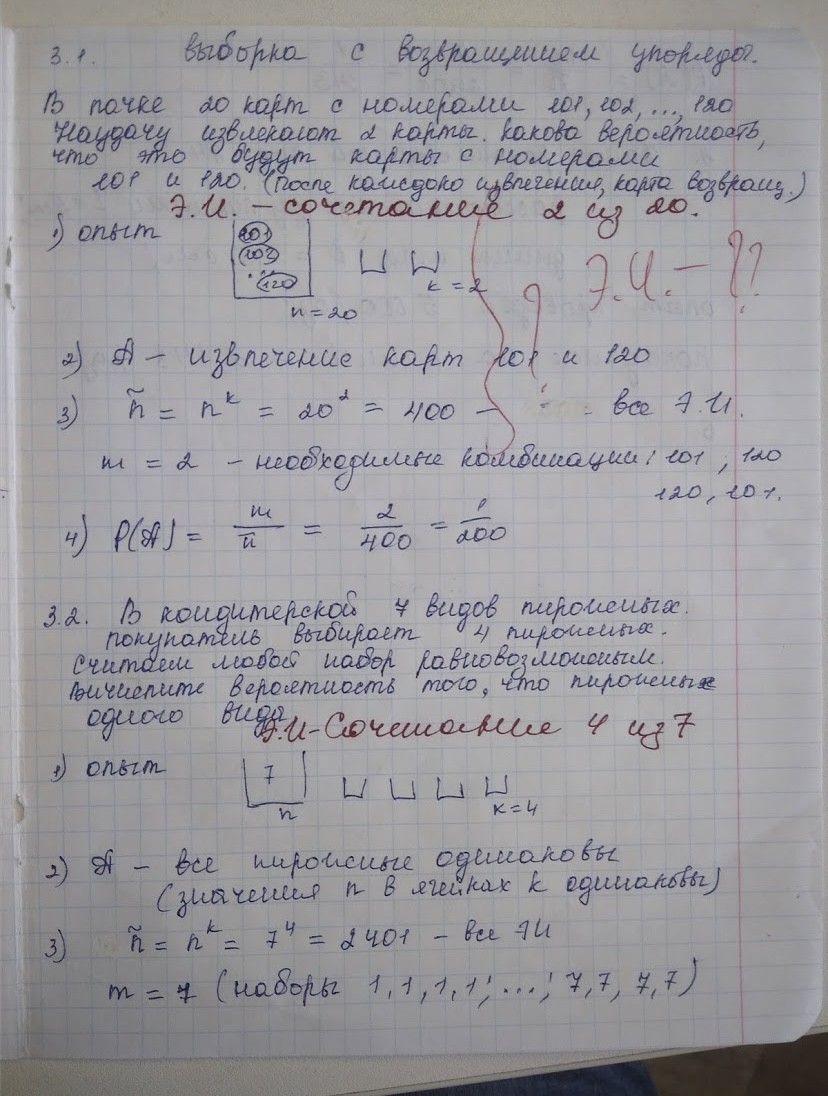 3.1. выборка с возвращением упорядоч.
В пачке 20 карт с номерами 101, 102, ..., 120
Наудачу извлекают 2 карты. Какова вероятность,
что это будут карты с номерами
101 и 120. (После каждого извлечения, карта возвращ.)
Э.И. – сочетание 2 из 20.
1) опыт
101
102
...
120
k = 2
n = 20
? Э.И. – ??
2) A – извлечение карт 101 и 120
3) ñ = n^k = 20² = 400 – все Э.И.
m = 2 – необходимые комбинации: 101, 120
120, 101.
4) P(A) = m/n = 2/400 = 1/200
3.2. В кондитерской 7 видов пирожных.
Покупатель выбирает 4 пирожных.
Считаем любой набор равновозможным.
Вычислите вероятность того, что пирожные
одного вида
Э.И-Сочетание 4 из 7
1) опыт 7
n
k = 4
2) A – все пирожные одинаковы
(значения n в ячейках k одинаковы)
3) ñ = n^k = 7⁴ = 2401 – все ЭИ
m = 7 (наборы 1,1,1,1; ...; 7,7,7,7)